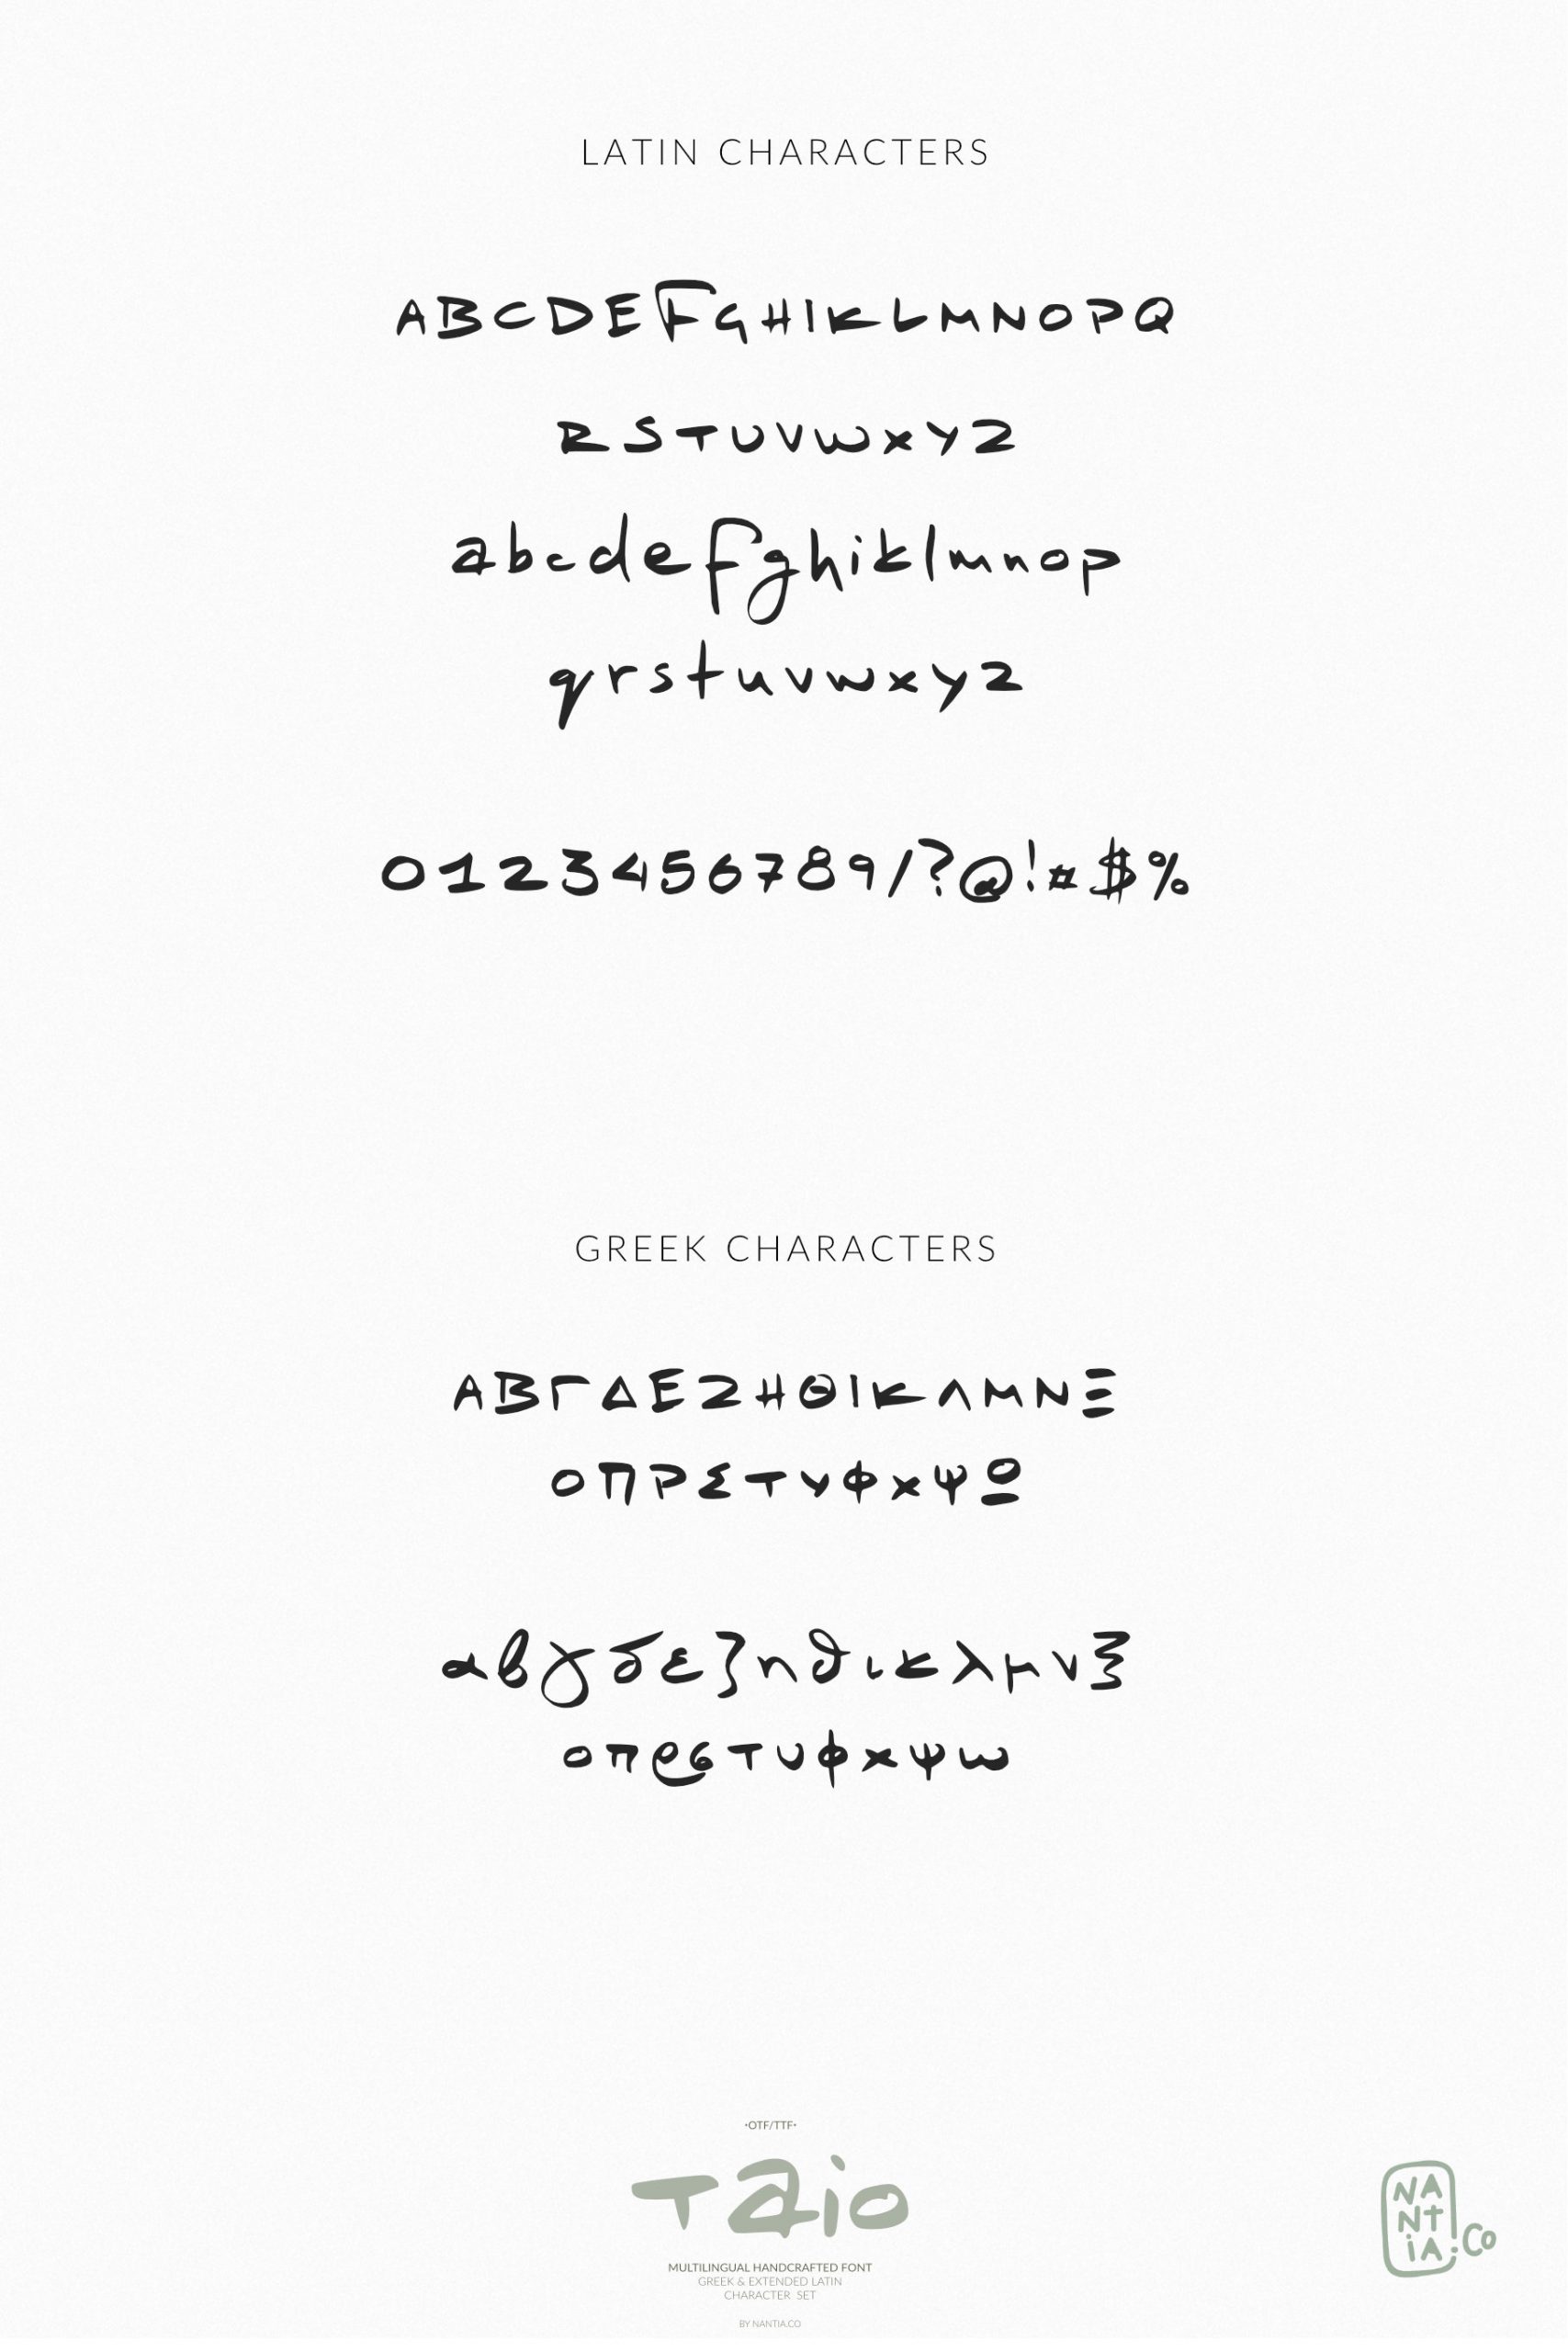 LATIN CHARACTERS
ABCDEFGHIKLMNOPQ
RSTUVWXYZ
abcdefghiklmnop
qrstuvwxyz
0123456789/?@!#$%
GREEK CHARACTERS
ΑΒΓΔΕΖΗΘΙΚΛΜΝΞ
ΟΠΡΣΤΥΦΧΨΩ
αβγδεζηθικλμνξ
οπρστυφχψω
•OTF/TTF•
Taio
MULTILINGUAL HANDCRAFTED FONT
GREEK & EXTENDED LATIN
CHARACTER SET
BY NANTIA.CO
NA
Nt
iA.Co